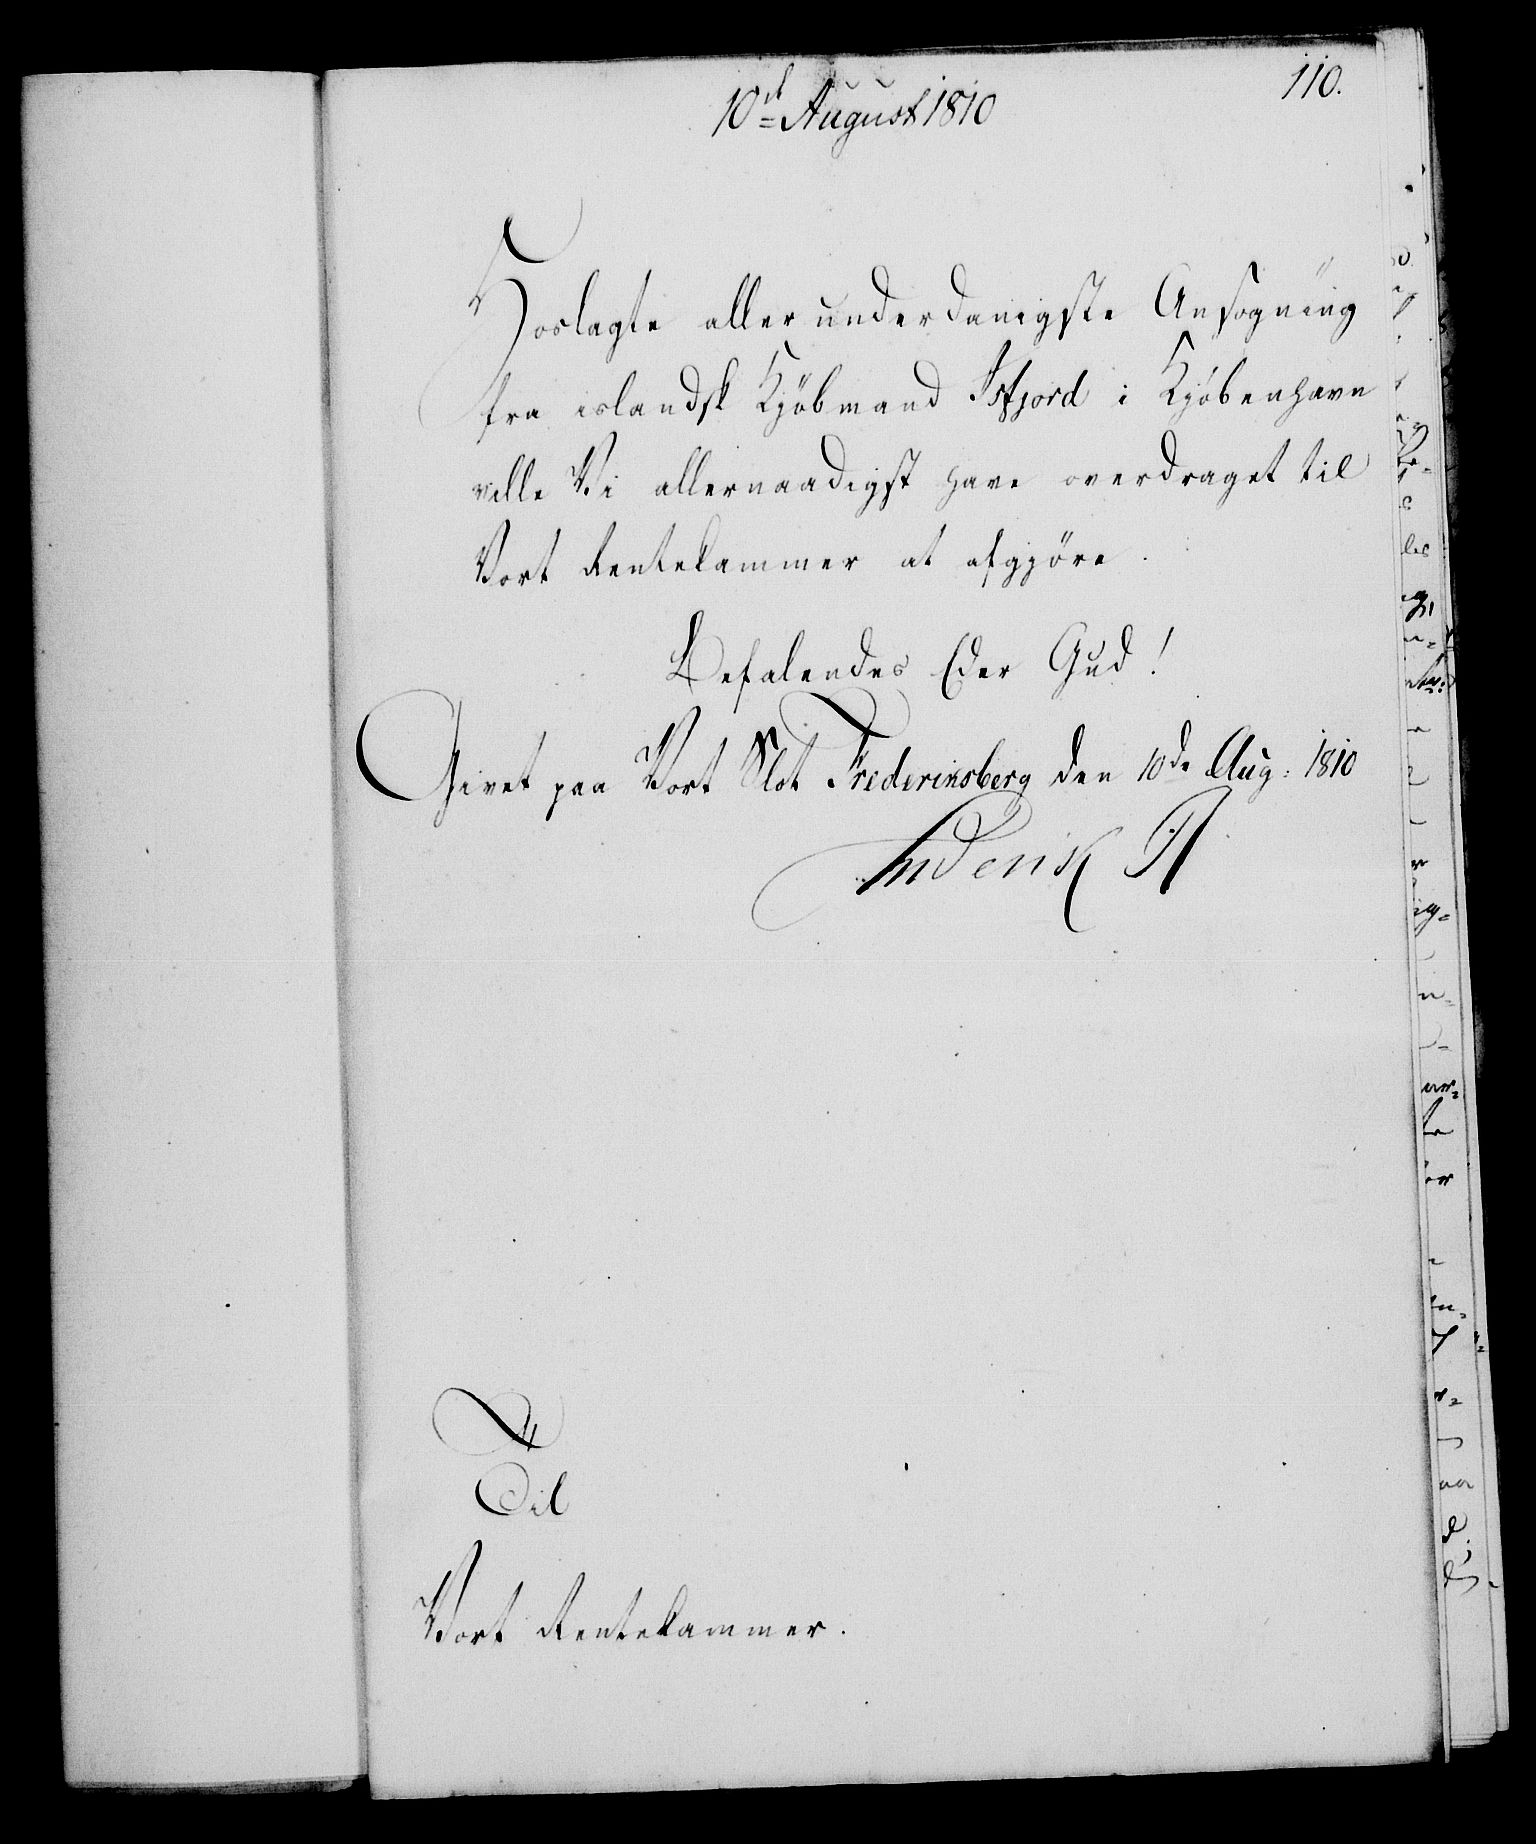 110.
10d August 1810
Hoslagte allerunderdanigste Ansøgning
fra islandsk Kjöbmand Isfjord i Kjöbenhavn
ville Vi allernaadigst have overdraget til
Vort Rentekammer at afgjöre.
Befalendes Eder Gud!
Givet paa Vort Slot Frederiksberg den 10de Aug: 1810
Frederik R
Til
Vort Rentekammer.